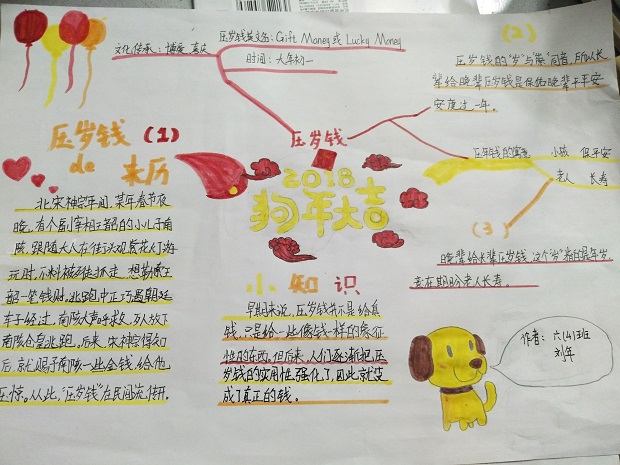 文化传承:博奕 喜庆
压岁钱英文名:Gift Money 或 Lucky Money
时间:大年初一
(2)
压岁钱的"岁"与"祟"同音,所以长
辈给晚辈压岁钱是保佑晚辈平平安
安度过一年。
压岁钱
压岁钱的寓意
小孩 保平安
老人 长寿
(3)
晚辈给长辈压岁钱,这个"岁"指的是年岁,
意在期盼老人长寿。
压岁钱(1)
de 来历
北宋神宗年间,某年春节夜
晚,有个副宰相王韶的小儿子南
陔,跟随大人在街头观赏花灯游
玩时,不料被歹徒抓走,想勒索王
韶一笔钱财。逃跑中正巧遇朝廷
车子经过,南陔大声呼救,歹人放下
南陔仓皇逃跑,后来,宋神宗得知
后,就赐予南陔一些金钱,给他
压惊。从此,"压岁钱"在民间流传开。
2018
狗年大吉
小知识
早期来说,压岁钱并不是给真
钱,只是给一些像钱一样的象征
性的东西,但后来,人们逐渐把压
岁钱的实用性强化了,因此就变
成了真正的钱。
作者:六(4)班
刘年